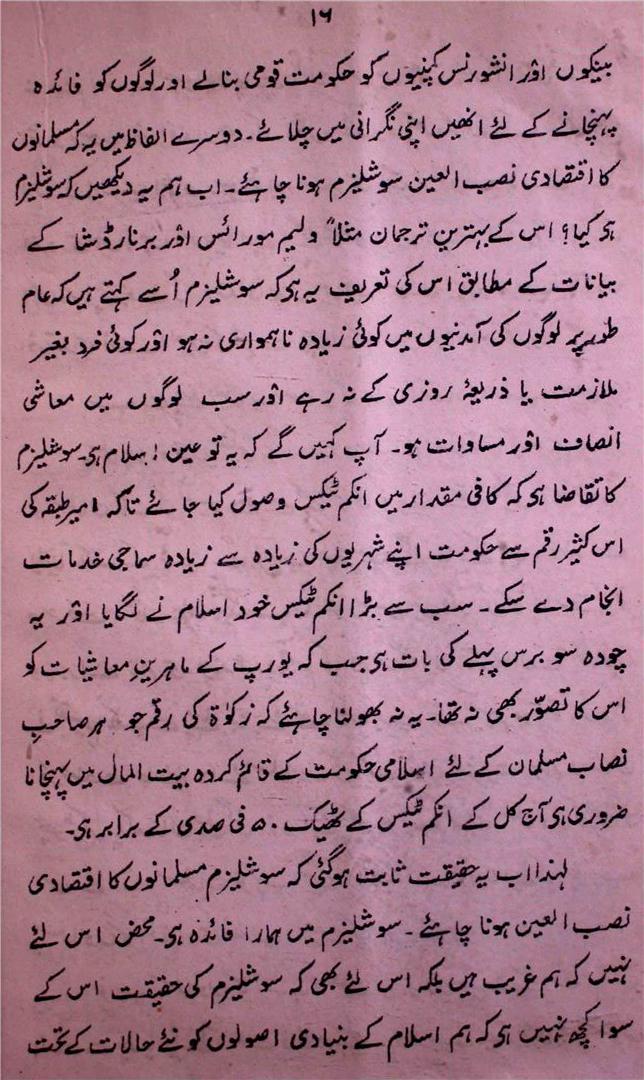 ۱۶
بینکوں اور انشورنس کمپنیوں کو حکومت قومی بنالے اور لوگوں کو فائدہ
پہنچانے کے لئے انھیں اپنی نگرانی میں چلائے۔ دوسرے الفاظ میں یہ کہ مسلمانوں
کا اقتصادی نصب العین سوشلیزم ہونا چاہئے۔ اب ہم یہ دیکھیں کہ سوشلیزم
ہی کیا؟ اس کے بہترین ترجمان مثلاً ولیم مورائس اور برنارڈشا کے
بیانات کے مطابق اس کی تعریف یہ ہی کہ سوشلیزم اُسے کہتے ہیں کہ عام
طور پر لوگوں کی آمدنیوں میں کوئی زیادہ ناہمواری نہ ہو اور کوئی فرد بغیر
ملازمت یا ذریعۂ روزی کے نہ رہے اور سب لوگوں میں معاشی
انصاف اور مساوات ہو۔ آپ کہیں گے کہ یہ تو عین اسلام ہی۔ سوشلیزم
کا تقاضا ہی کہ کافی مقدار میں انکم ٹیکس وصول کیا جائے تاکہ امیر طبقہ کی
اس کثیر رقم سے حکومت اپنے شہریوں کی زیادہ سے زیادہ سماجی خدمات
انجام دے سکے۔ سب سے بڑا انکم ٹیکس خود اسلام نے لگایا اور یہ
چودہ سو برس پہلے کی بات ہی جب کہ یورپ کے ماہرینِ معاشیات کو
اس کا تصوّر بھی نہ تھا۔ یہ نہ بھولنا چاہئے کہ زکوٰۃ کی رقم جو ہر صاحبِ
نصاب مسلمان کے لئے اسلامی حکومت کے قائم کردہ بیت المال میں پہنچانا
ضروری ہی آج کل کے انکم ٹیکس کے ٹھیک ۵۰ فی صدی کے برابر ہی۔
لہٰذا اب یہ حقیقت ثابت ہوگئی کہ سوشلیزم مسلمانوں کا اقتصادی
نصب العین ہونا چاہئے۔ سوشلیزم میں ہمارا فائدہ ہی۔ محض اس لئے
نہیں کہ ہم غریب ہیں بلکہ اس لئے بھی کہ سوشلیزم کی حقیقت اس کے
سوا کچھ نہیں ہی کہ ہم اسلام کے بنیادی اصولوں کو نئے حالات کے تحت